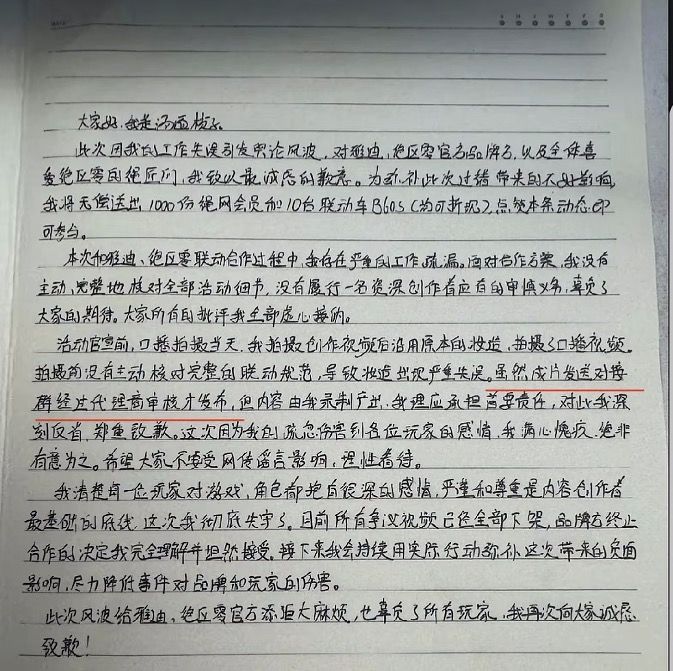 S M T W T F S
大家好，我是汤面核心
此次因我的工作失误引发舆论风波，对雅迪，绝区零官方品牌方，以及全体喜
爱绝区零的绳匠们，我致以最诚恳的歉意。为弥补此次过错带来的不好影响，
我将无偿送出1000份绳网会员加10台联动车B60S（均可折现），点赞本条动态即
可参与。
本次和雅迪、绝区零联动合作过程中，我存在严重的工作疏漏。面对合作方案，我没有
主动、完整地核对全部活动细节，没有履行一名资深创作者应有的审慎义务，辜负了
大家的期待。大家所有的批评我全部虚心接纳。
活动官宣前，口播拍摄当天，我拍摄创作视频后沿用原本的妆造，拍摄了口播视频。
拍摄前没有主动核对完整的联动规范，导致妆造出现严重失误。虽然成片发送对接
群经过代理商审核才发布，但内容由我录制产出，我理应承担首要责任，对此我深
刻反省，郑重致歉。这次因为我的疏忽伤害到各位玩家的感情，我满心愧疚，绝非
有意为之。希望大家不要受网传谣言影响，理性看待。
我清楚每一位玩家对游戏，角色都抱有很深的感情，严谨和尊重是内容创作者
最基础的底线，这次我彻底失守了。目前所有争议视频已经全部下架，品牌方终止
合作的决定我完全理解并坦然接受。接下来我会持续用实际行动弥补这次带来的负面
影响，尽力降低事件对品牌和玩家的伤害。
此次风波给雅迪，绝区零官方添巨大麻烦，也辜负了所有玩家，我再次向大家诚恳
致歉！